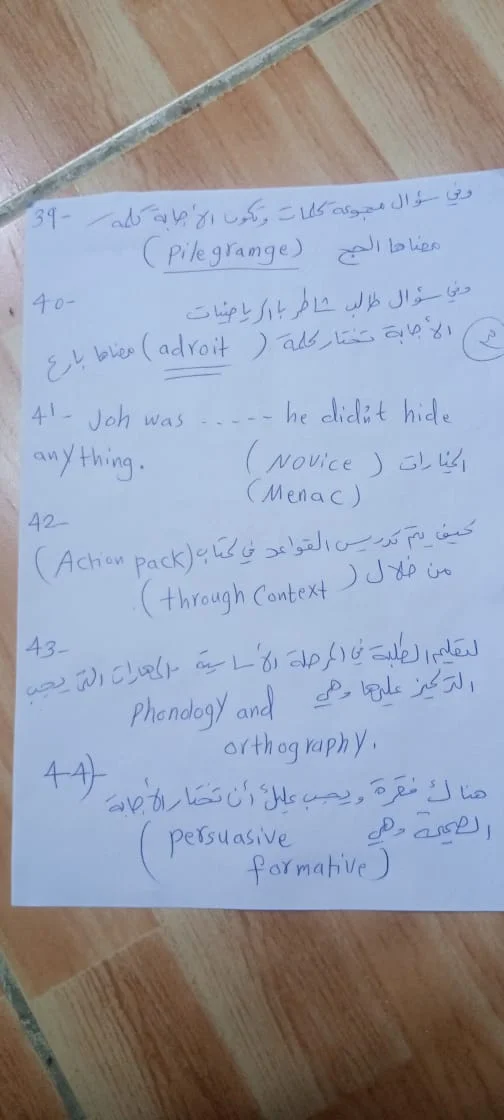 39- وفي سؤال مجموعة كلمات وتكون الأجابة كلمة
معناها الحج (Pilegrange)
40- وفي سؤال طالب شاطر بالرياضيات
الأجابة تختار كلمة (adroit) معناها بارع
41- Joh was ----- he didn't hide
anything. الخيارات (Novice)
(Menac)
42-
كيف يتم تدريس القواعد في كتاب (Action pack)
من خلال (through Context).
43- لتعليم الطلبة في المرحلة الأساسية المهارات التي يجب
التركيز عليها وهي Phonology and
orthography.
44) هناك فقرة ويجب عليك أن تختار الأجابة
الصحيحة وهي (persuasive
formative)